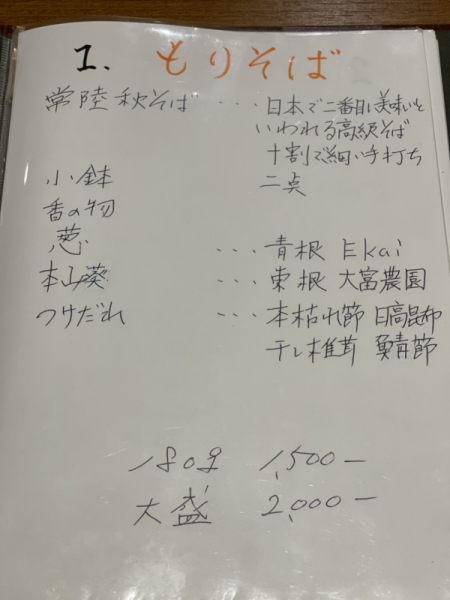 1. もりそば
常陸秋そば ... 日本で二番目に美味いと
いわれる高級そば
十割で細い手打ち
小鉢 二点
香の物
葱 ... 青根 Ekai
本山葵 ... 東根 大富農園
つけだれ ... 本枯れ節 日高昆布
干し椎茸 鯖節
180g 1,500ー
大盛 2,000ー